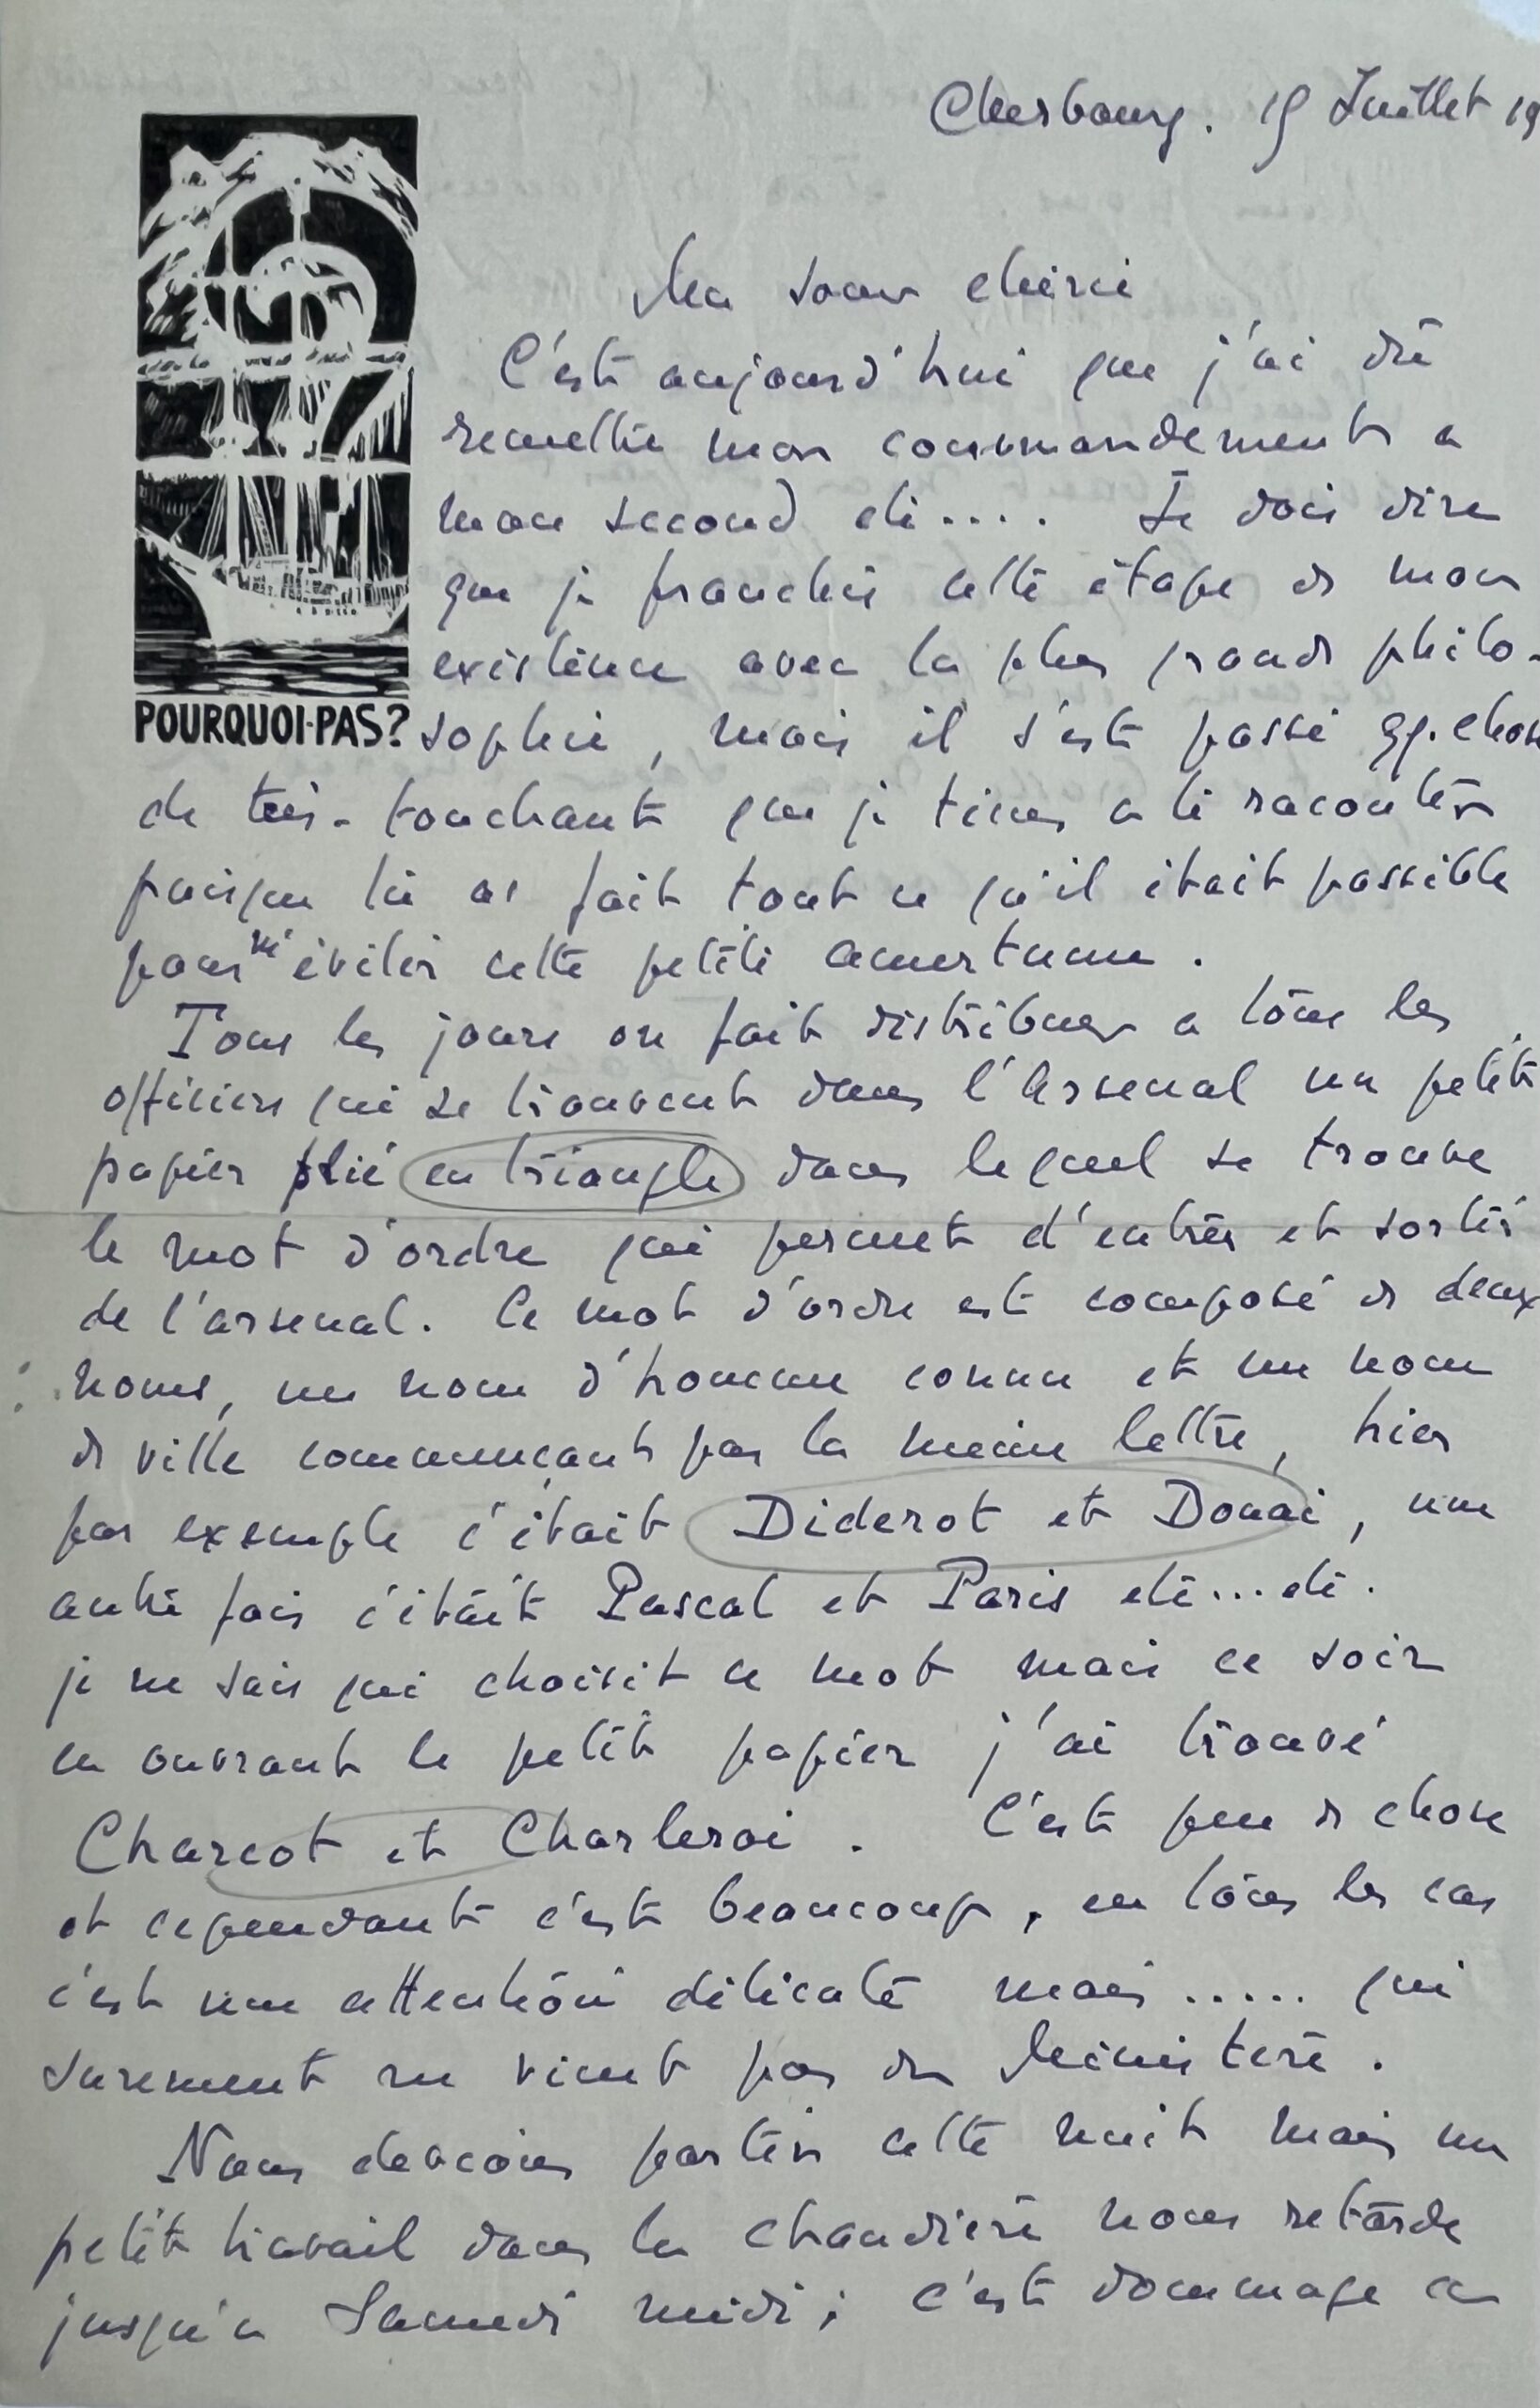 Cherbourg. 15 Juillet 19
Ma soeur chérie
C'est aujourd'hui que j'ai dû
remettre mon commandement a
mon second etc.... Je dois dire
que je franchis cette étape de mon
existence avec la plus grande philo-
POURQUOI-PAS?
sophie, mais il s'est passé qq. chose
de très-touchant que je tiens a te raconter
puisque tu as fait tout ce qu'il était possible
pour m'éviter cette petite amertume.
Tous les jours on fait distribuer a tous les
officiers qui se trouvent dans l'Arsenal un petit
papier plié en triangle dans lequel se trouve
le mot d'ordre qui permet d'entrer et sortir
de l'arsenal. Ce mot d'ordre est composé de deux
noms, un nom d'homme connu et un nom
de ville commençant par la meme lettre, hier
par exemple c'était Diderot et Douai, une
autre fois c'était Pascal et Paris etc...etc.
je ne sais qui choisit ce mot mais ce soir
en ouvrant le petit papier j'ai trouvé
Charcot et Charleroi. C'est peu de chose
et cependant c'est beaucoup, en tous les cas
c'est une attention délicate mais..... qui
surement ne vient pas du Ministere.
Nous devions partir cette nuit mais un
petit travail dans la chaudière nous retarde
jusqu'a Samedi midi; c'est dommage ca